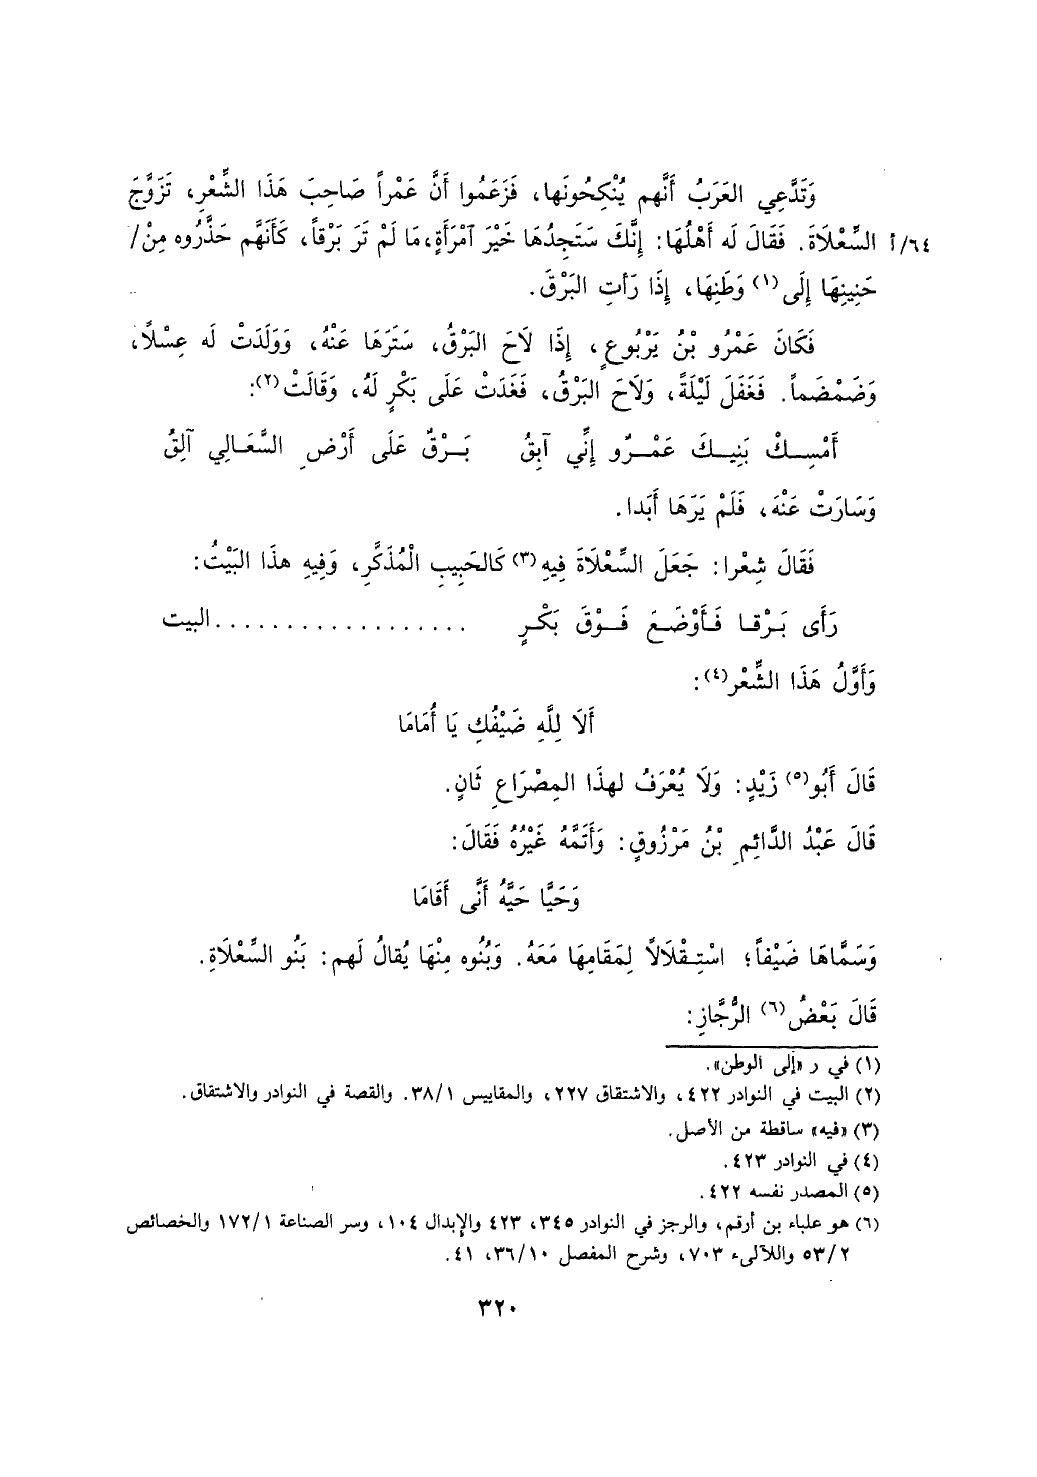 وَتَدَّعِي العَرَبُ أَنَّهم يُنْكِحُونَها، فَزَعَمُوا أَنَّ عَمْراً صَاحِبَ هَذَا الشِّعْرِ، تَزَوَّجَ
٦٤/أ السِّعْلَاةَ. فَقَالَ لَه أَهْلُهَا: إِنَّكَ سَتَجِدُهَا خَيْرَ آمْرَأَةٍ، مَا لَمْ تَرَ بَرْقاً، كَأَنَّهم حَذَّرُوه مِنْ/
حَنِينِهَا إِلَى(١) وَطَنِهَا، إِذَا رَأتِ البَرْقَ.
فَكَانَ عَمْرُو بْنُ يَرْبُوعٍ، إِذَا لَاحَ البَرْقُ، سَتَرَهَا عَنْهُ، وَوَلَدَتْ لَه عِسْلاً،
وَضَمْضَماً. فَغَفَلَ لَيْلَةً، وَلَاحَ البَرْقُ، فَغَدَتْ عَلَى بَكْرٍ لَهُ، وَقَالَتْ(٢):
أَمْسِكْ بَنِيكَ عَمْرُو إِنِّي آبِقُ بَرْقٌ عَلَى أَرْضِ السَّعَالِي آلِقُ
وَسَارَتْ عَنْهَ، فَلَمْ يَرَهَا أَبَدا.
فَقَالَ شِعْرا: جَعَلَ السِّعْلَاةَ فِيهِ(٣) كَالحَبِيبِ الْمُذَكَّرِ، وَفِيهِ هذَا البَيْتُ:
رَأَى بَرْقا فَأَوْضَعَ فَوْقَ بَكْرٍ ..................البيت
وَأَوَّلُ هَذَا الشِّعْرِ(٤):
أَلَا لِلَّهِ ضَيْفُكِ يَا أُمَامَا
قَالَ أَبُو(٥) زَيْدٍ: وَلَا يُعْرَفُ لهذَا المِصْرَاعِ ثَانٍ.
قَالَ عَبْدُ الدَّائِمِ بْنُ مَرْزُوقٍ: وَأَتَمَّهُ غَيْرُهُ فَقَالَ:
وَحَيَّا حَيَّهُ أَنَّى أَقَامَا
وَسَمَّاهَا ضَيْفاً؛ اسْتِقْلَالاً لِمَقَامِهَا مَعَهُ. وَبُنُوه مِنْهَا يُقالُ لَهم: بَنُو السِّعْلَاةِ.
قَالَ بَعْضُ(٦) الرُّجَّازِ:
(١) في ر «إلى الوطن».
(٢) البيت في النوادر ٤٢٢، والاشتقاق ٢٢٧، والمقاييس ٣٨/١. والقصة في النوادر والاشتقاق.
(٣) «فيه» ساقطة من الأصل.
(٤) في النوادر ٤٢٣.
(٥) المصدر نفسه ٤٢٢.
(٦) هو علباء بن أرقم، والرجز في النوادر ٣٤٥، ٤٢٣ والإبدال ١٠٤، وسر الصناعة ١٧٢/١ والخصائص
٥٣/٢ واللآلىء ٧٠٣، وشرح المفصل ٣٦/١٠، ٤١.
٣٢٠